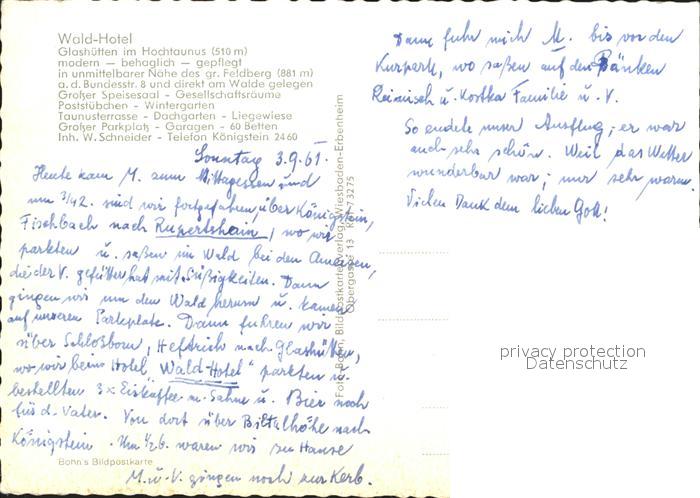 Wald-Hotel
Glashütten im Hochtaunus (510 m)
modern — behaglich — gepflegt
in unmittelbarer Nähe des gr. Feldberg (881 m)
a. d. Bundesstr. 8 und direkt am Walde gelegen
Großer Speisesaal - Gesellschaftsräume
Poststübchen - Wintergarten
Taunusterrasse - Dachgarten - Liegewiese
Großer Parkplatz - Garagen - 60 Betten
Inh. W. Schneider - Telefon Königstein 2460
Sonntag 3.9.61.
Heute kam M. zum Mittagessen und
um 3/4 2. sind wir fortgefahren, über Königstein,
Fischbach nach Ruppertshain, wo wir
parkten u. saßen im Wald bei den Ameisen,
die der V. gefüttert hat mit Süßigkeiten. Dann
gingen wir um den Wald herum u. kamen
auf unseren Parkplatz. Dann fuhren wir
über Schloßborn, Heftrich nach Glashütten,
wo wir beim Hotel "Wald-Hotel" parkten u.
bestellten 3x Eiskaffee m. Sahne u. Bier noch
für d. Vater. Von dort über Billtalhöhe nach
Königstein. Um 1/2 6. waren wir zu Hause
M. u. V. gingen noch zur Kerb.
Bohn's Bildpostkarte
Foto Bohn, Bildpostkartenverlag, Wiesbaden-Erbenheim
Obergasse 13 73275
Dann fuhr mich M. bis vor den
Kurpark, wo saßen auf den Bänken
Reinisch u. Kostka Familie u. V.
So endete unser Ausflug; er war
auch sehr schön. Weil das Wetter
wunderbar war; nur sehr warm.
Vielen Dank dem lieben Gott!
privacy protection
Datenschutz